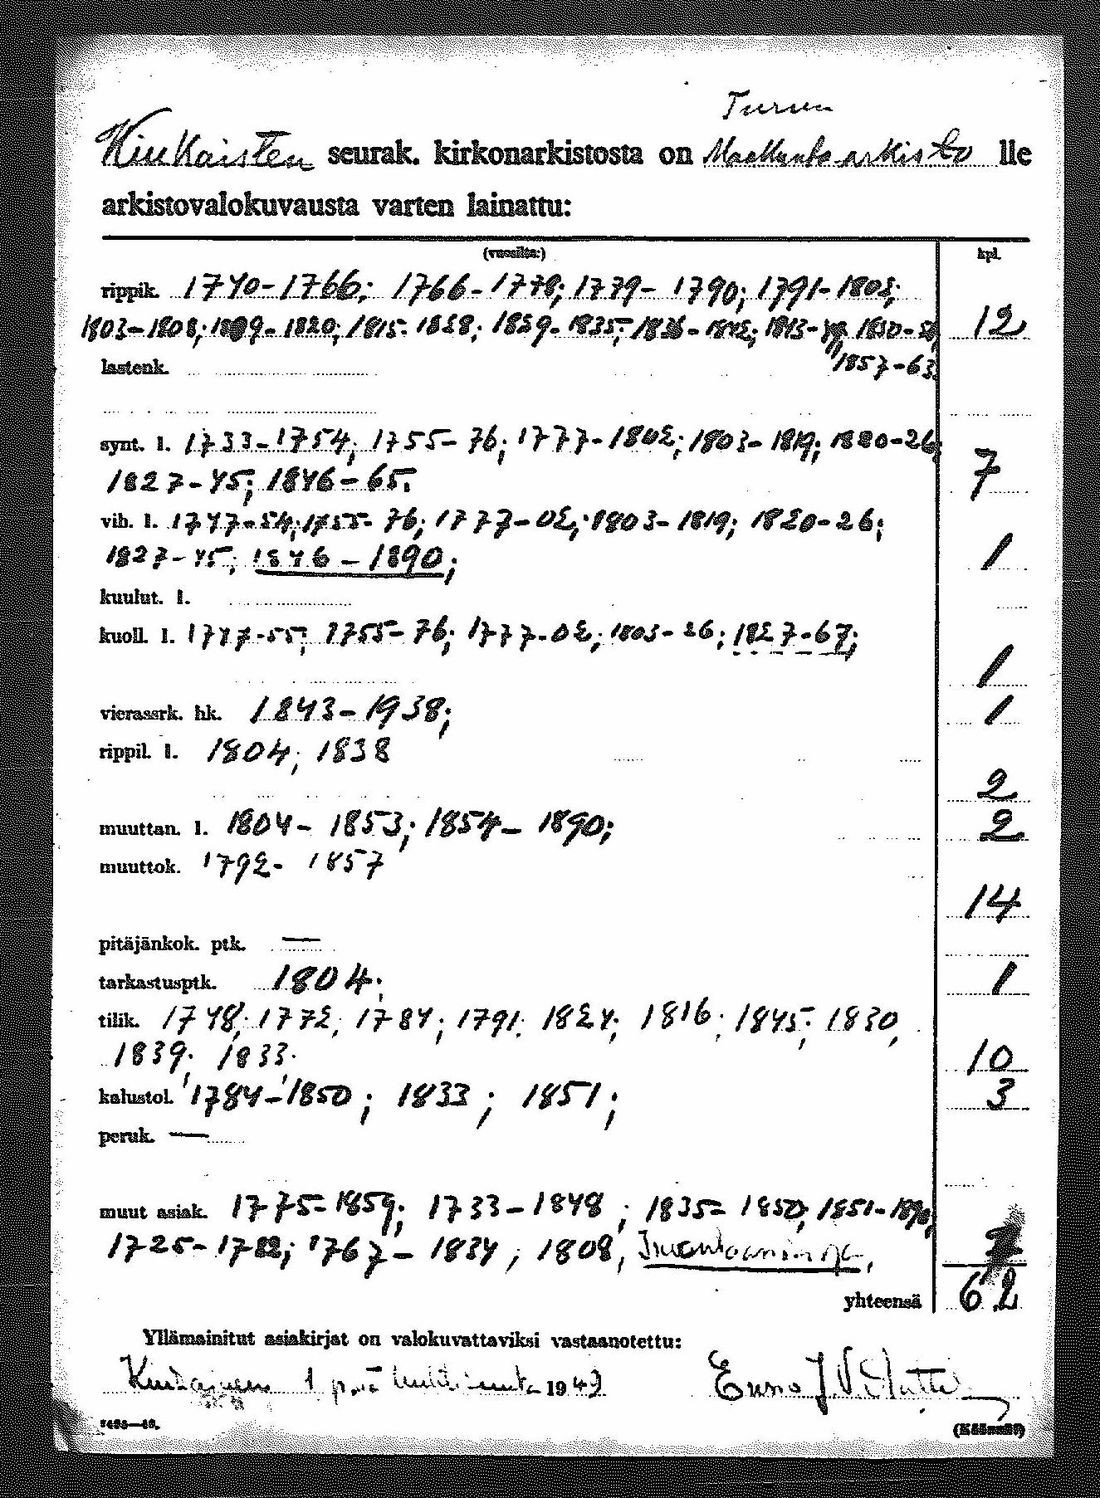 Turun
Kiukaisten seurak. kirkonarkistosta on Maakunta-arkisto lle
arkistovalokuvausta varten lainattu:
(vuosilta:) kpl.
rippik. 1740-1766; 1766-1778; 1779-1790; 1791-1802;
1803-1808; 1809-1820; 1815-1828; 1829-1835; 1836-1842; 1843-49, 1850-56, 12
lastenk. 1857-63.
synt. l. 1733-1754; 1755-76; 1777-1802; 1803-1819; 1820-26;
1827-45; 1846-65. 7
vih. l. 1747-54; 1755-76; 1777-02; 1803-1819; 1820-26;
1827-45; 1846-1890; 1
kuulut. l.
kuoll. l. 1747-55; 1755-76; 1777-02; 1803-26; 1827-67;
1
vierassrk. hk. 1843-1938; 1
rippil. l. 1804, 1838
2
muuttan. l. 1804-1853; 1854-1890; 2
muuttok. 1792-1857
14
pitäjänkok. ptk. —
tarkastusptk. 1804; 1
tilik. 1748; 1772; 1784; 1791; 1824; 1816; 1845; 1830,
1839; 1833. 10
kalustol. 1784-1850; 1833; 1851; 3
peruk. —
muut asiak. 1775-1859; 1733-1848; 1835-1850; 1851-1890;
1725-1782; 1767-1834, 1808, 7
yhteensä 62
Yllämainitut asiakirjat on valokuvattaviksi vastaanotettu:
1 p:nä huhtikuuta 1949
(Käännä!)